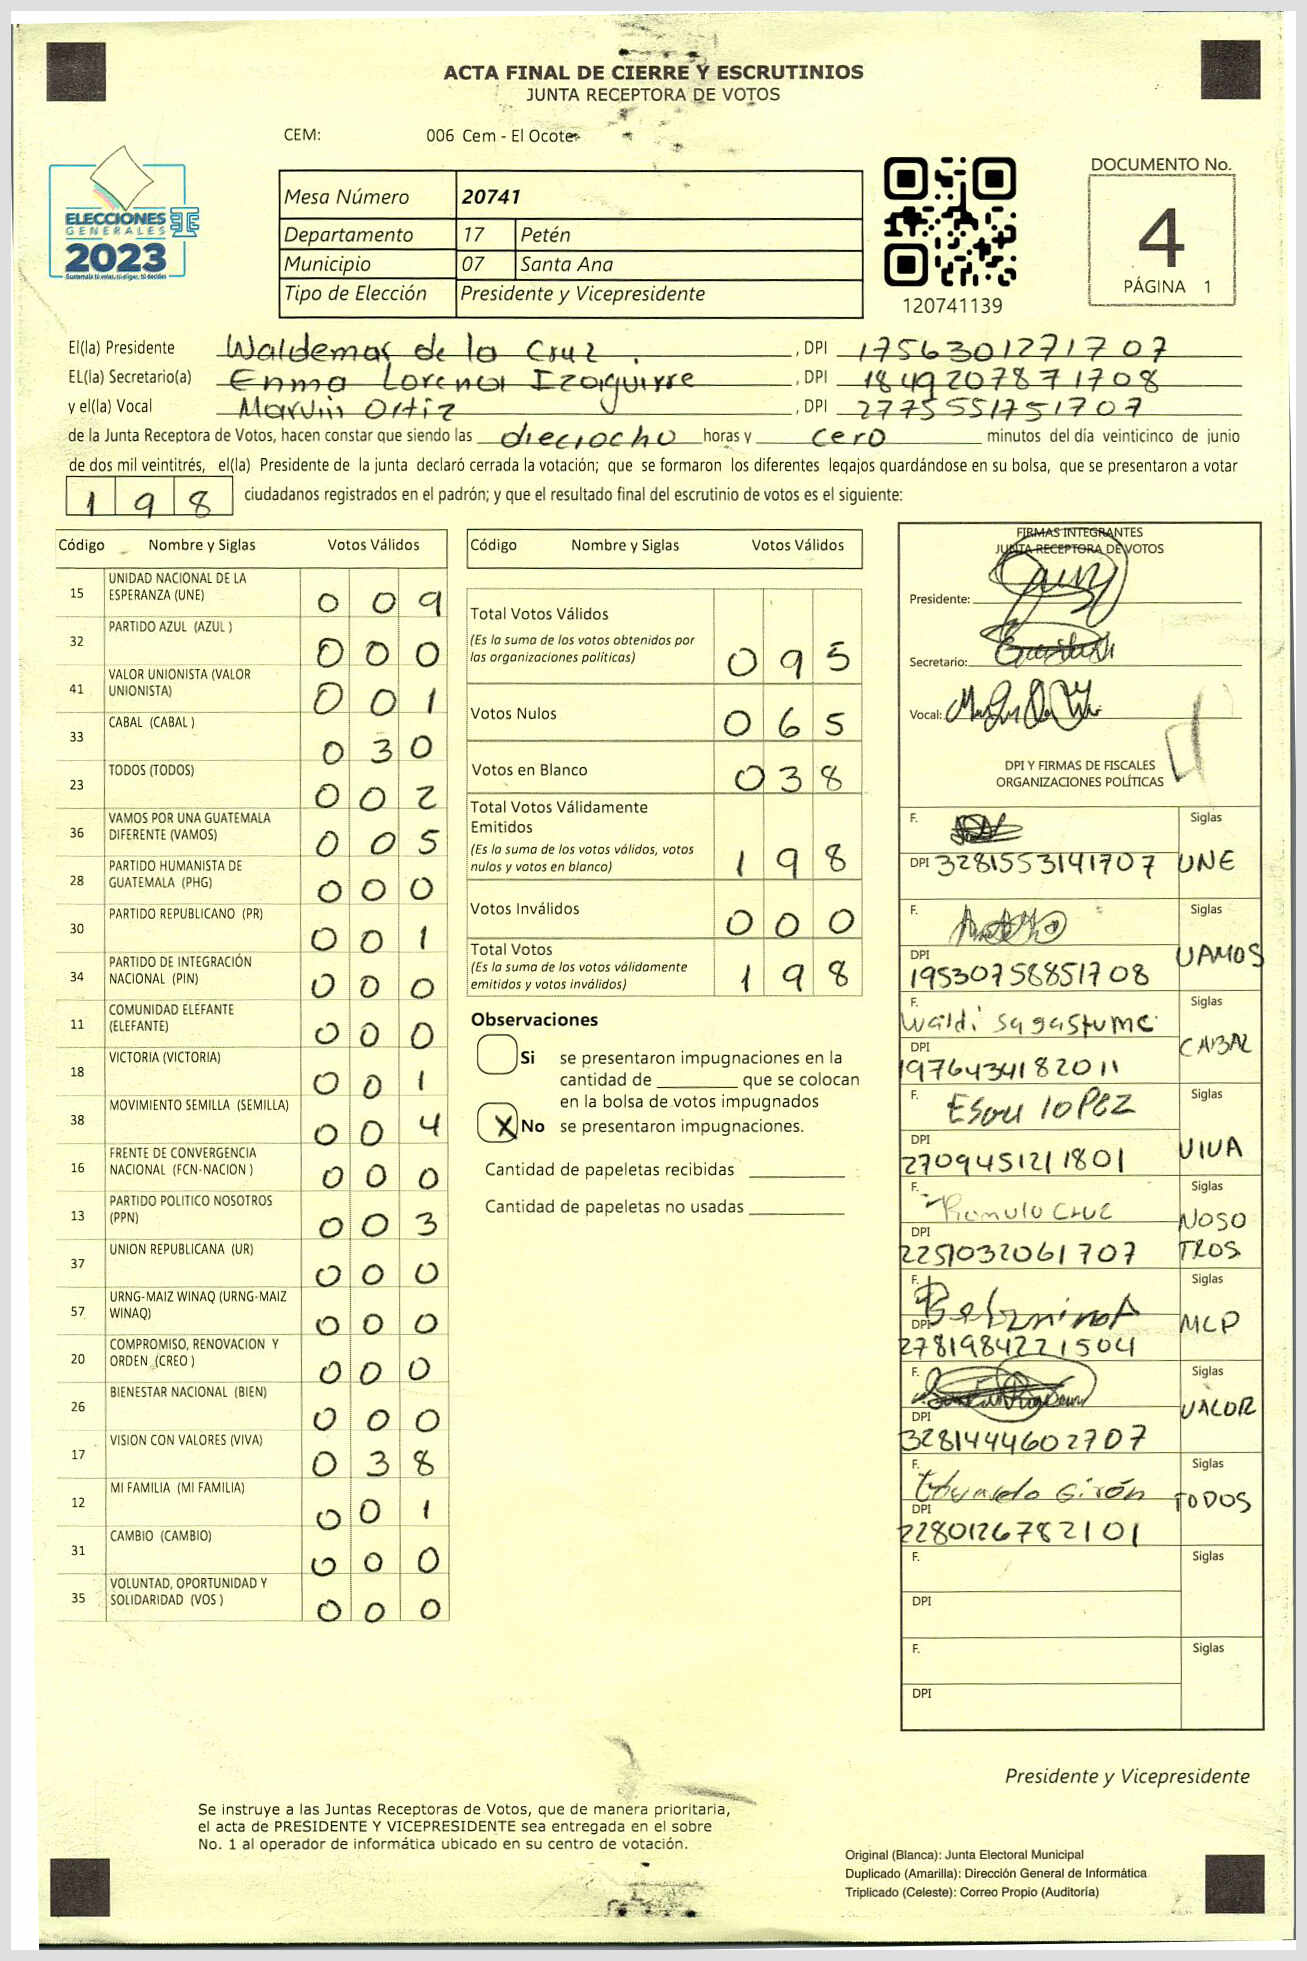 ACTA FINAL DE CIERRE Y ESCRUTINIOS
JUNTA RECEPTORA DE VOTOS
CEM: 006 Cem - El Ocote
ELECCIONES
GENERALES
2023
Mesa Número 20741
Departamento 17 Petén
Municipio 07 Santa Ana
Tipo de Elección Presidente y Vicepresidente
120741139
DOCUMENTO No.
4
PÁGINA 1
El(la) Presidente Waldemar de la Cruz , DPI 1756301271707
EL(la) Secretario(a) Enma Lorena Izaguirre , DPI 1849207871708
y el(la) Vocal Marvin Ortiz , DPI 2775551751707
de la Junta Receptora de Votos, hacen constar que siendo las dieciocho horas y cero minutos del día veinticinco de junio
de dos mil veintitrés, el(la) Presidente de la junta declaró cerrada la votación; que se formaron los diferentes legajos guardándose en su bolsa, que se presentaron a votar
198 ciudadanos registrados en el padrón; y que el resultado final del escrutinio de votos es el siguiente:
Código Nombre y Siglas Votos Válidos
15 UNIDAD NACIONAL DE LA ESPERANZA (UNE) 009
32 PARTIDO AZUL (AZUL ) 000
41 VALOR UNIONISTA (VALOR UNIONISTA) 001
33 CABAL (CABAL ) 030
23 TODOS (TODOS) 002
36 VAMOS POR UNA GUATEMALA DIFERENTE (VAMOS) 005
28 PARTIDO HUMANISTA DE GUATEMALA (PHG) 000
30 PARTIDO REPUBLICANO (PR) 001
34 PARTIDO DE INTEGRACIÓN NACIONAL (PIN) 000
11 COMUNIDAD ELEFANTE (ELEFANTE) 000
18 VICTORIA (VICTORIA) 001
38 MOVIMIENTO SEMILLA (SEMILLA) 004
16 FRENTE DE CONVERGENCIA NACIONAL (FCN-NACION ) 000
13 PARTIDO POLITICO NOSOTROS (PPN) 003
37 UNION REPUBLICANA (UR) 000
57 URNG-MAIZ WINAQ (URNG-MAIZ WINAQ) 000
20 COMPROMISO, RENOVACION Y ORDEN (CREO ) 000
26 BIENESTAR NACIONAL (BIEN) 000
17 VISION CON VALORES (VIVA) 038
12 MI FAMILIA (MI FAMILIA) 001
31 CAMBIO (CAMBIO) 000
35 VOLUNTAD, OPORTUNIDAD Y SOLIDARIDAD (VOS ) 000
Código Nombre y Siglas Votos Válidos
Total Votos Válidos
(Es la suma de los votos obtenidos por
las organizaciones políticas) 095
Votos Nulos 065
Votos en Blanco 038
Total Votos Válidamente
Emitidos
(Es la suma de los votos válidos, votos
nulos y votos en blanco) 198
Votos Inválidos 000
Total Votos
(Es la suma de los votos válidamente
emitidos y votos inválidos) 198
Observaciones
Si se presentaron impugnaciones en la
cantidad de ________ que se colocan
en la bolsa de votos impugnados
X No se presentaron impugnaciones.
Cantidad de papeletas recibidas
Cantidad de papeletas no usadas
FIRMAS INTEGRANTES
JUNTA RECEPTORA DE VOTOS
Presidente:
Secretario:
Vocal:
DPI Y FIRMAS DE FISCALES
ORGANIZACIONES POLÍTICAS
F. Siglas
DPI 3281553141707 UNE
F. Siglas
DPI 19530758851708 VAMOS
F. Waldi Sagastume Siglas
DPI 1976434182011 CABAL
F. Esau lopez Siglas
DPI 2709451211801 VIVA
F. Romulo Cruz Siglas
DPI 2251032061707 NOSO
TROS
F. Siglas
DPI 2781984221504 MLP
F. Siglas
DPI 3281444602707 VALOR
F. Girón Siglas
DPI 2280126782101 TODOS
F. Siglas
DPI
F. Siglas
DPI
Presidente y Vicepresidente
Se instruye a las Juntas Receptoras de Votos, que de manera prioritaria,
el acta de PRESIDENTE Y VICEPRESIDENTE sea entregada en el sobre
No. 1 al operador de informática ubicado en su centro de votación.
Original (Blanca): Junta Electoral Municipal
Duplicado (Amarilla): Dirección General de Informática
Triplicado (Celeste): Correo Propio (Auditoría)